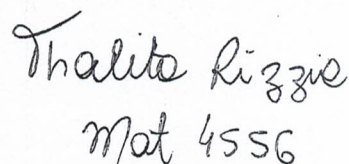 Thalita Rizzie
Mat 4556